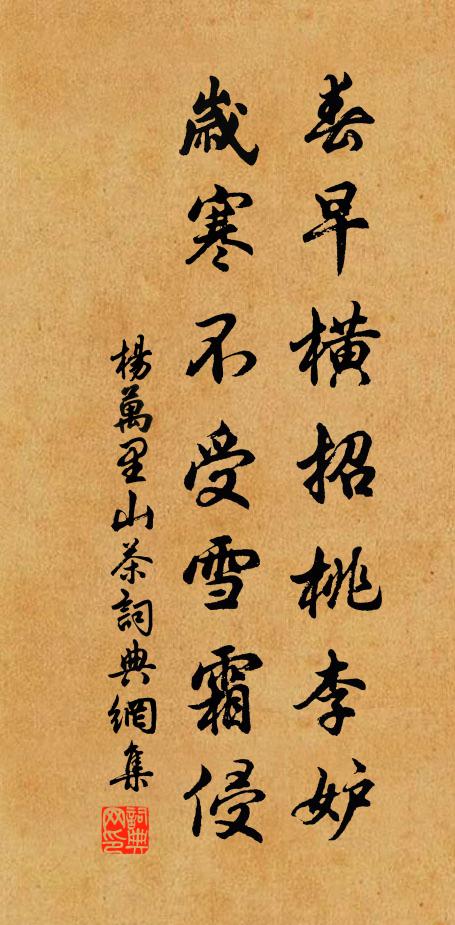 春早橫招桃李妒
歲寒不受雪霜侵
楊萬里山茶詞典網集
詞典网印